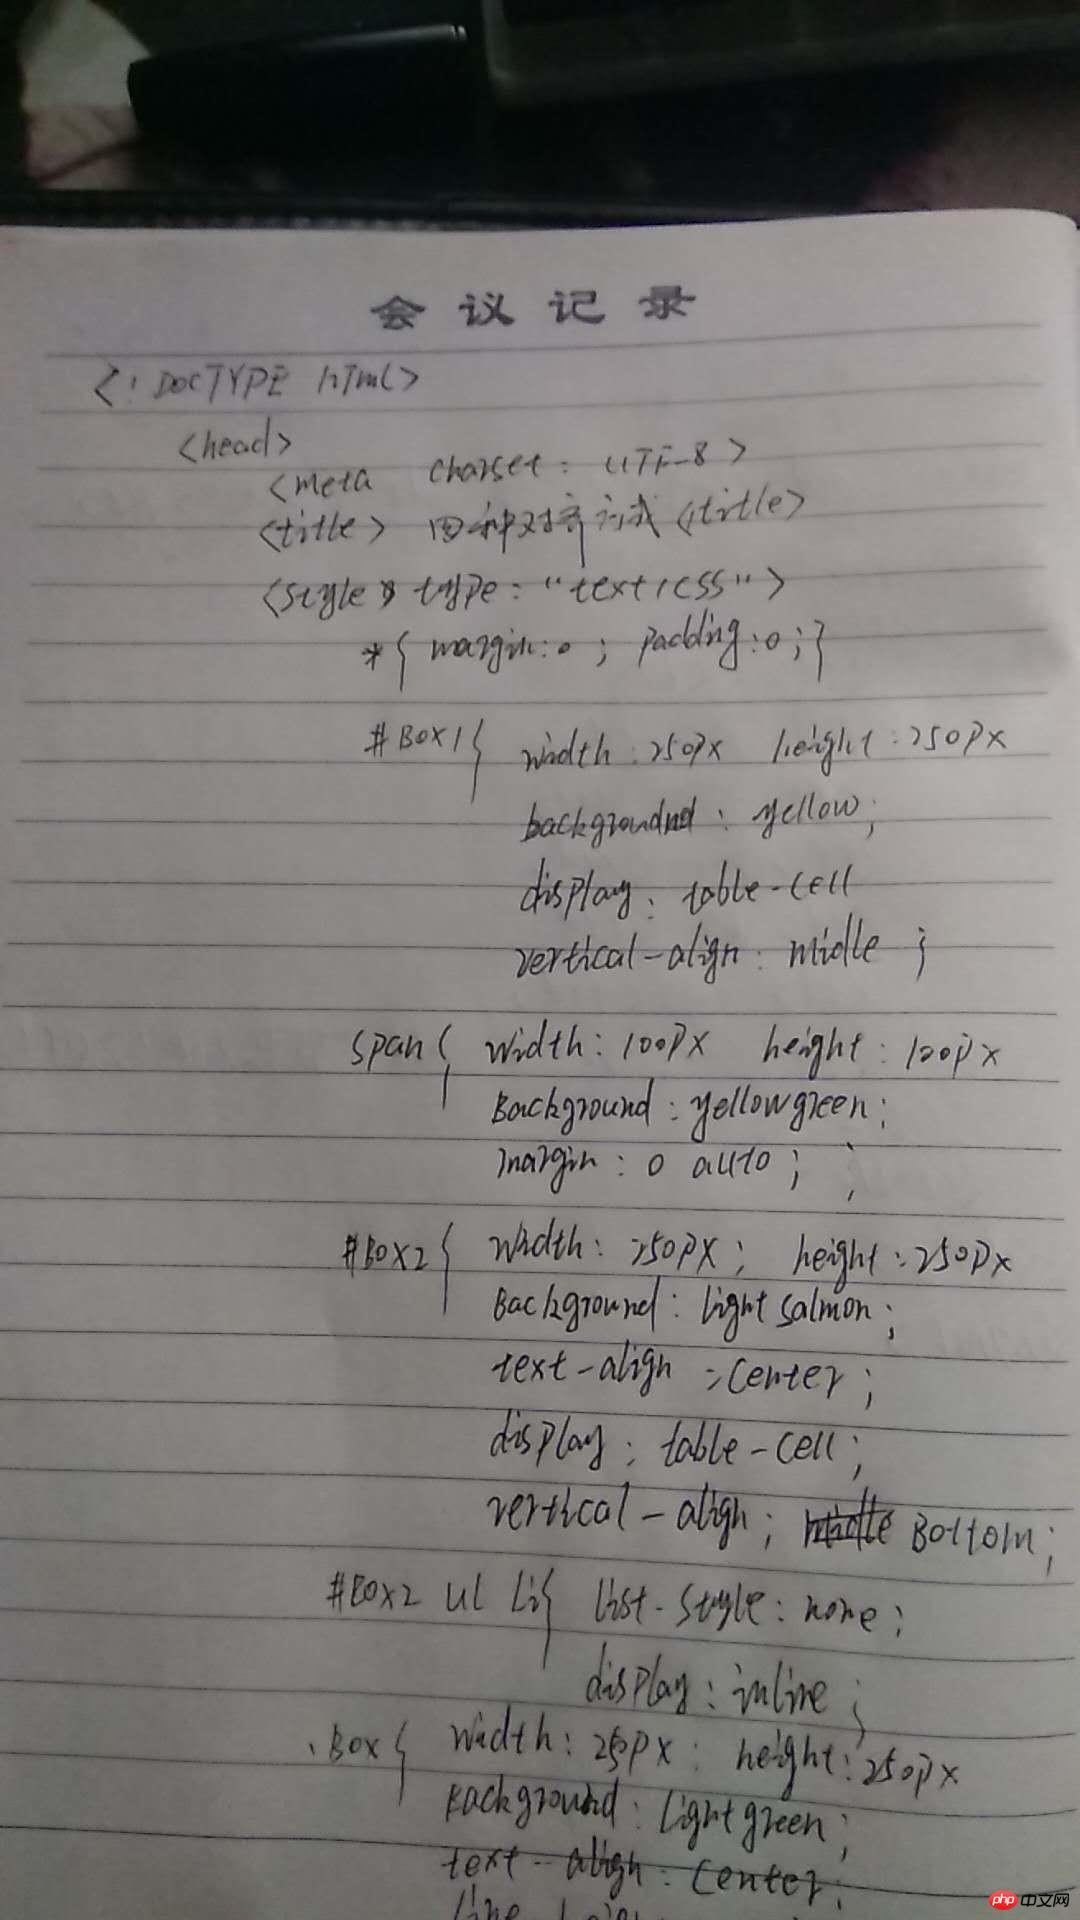 会议记录
<! DOCTYPE html>
<head>
<meta charset: UTF-8>
<title> 四种对齐方式 </title>
<style type: "text/css">
*{ margin:0 ; padding:0;}
#Box1{ width:250px height:250px
background: yellow;
display: table-cell
vertical-align: midle ;
span{ width:100px height:100px
Background: yellowgreen;
margin: 0 auto; ;
#Box2{ width: 250px; height:250px
Background: lightsalmon;
text-align :center;
display: table-cell;
vertical-align; Bottom;
#Box2 ul li{ list-style: none;
display: inline ;
.Box{ width: 250px; height:250px
Background: lightgreen;
text-align: center;
line-
php中文网